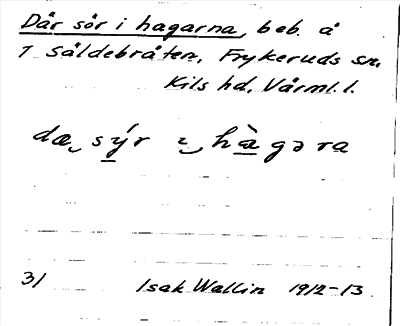 Där sör i hagarna, beb. å
1 Såldebråten, Frykeruds sn,
Kils hd, Värml. l.
dæ sý̱r ı hà̱gəra
31 Isak Wallin 1912-13